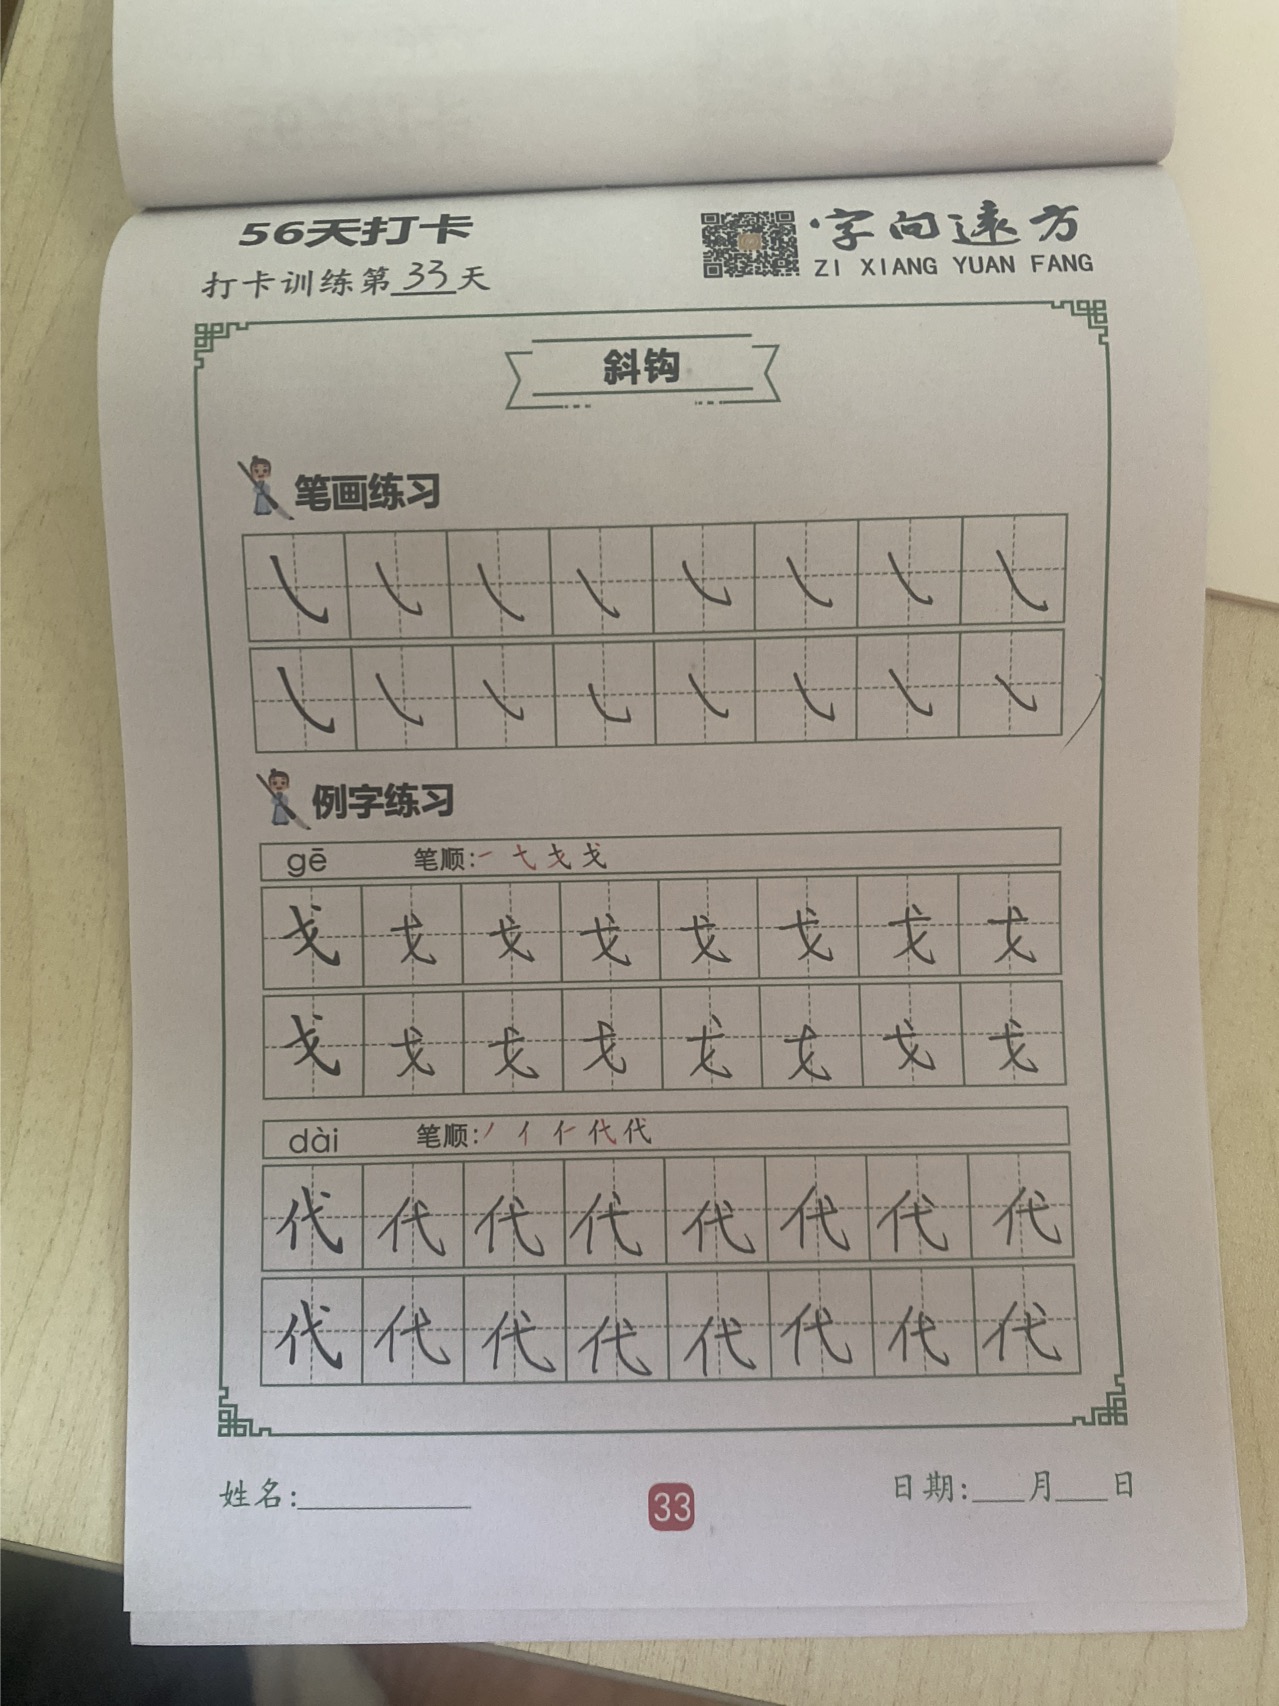 56天打卡
字向远方
打卡训练第33天
ZI XIANG YUAN FANG
斜钩
笔画练习
例字练习
gē 笔顺:一 弋 戈 戈
戈 戈 戈 戈 戈 戈 戈 戈
戈 戈 戈 戈 戈 戈 戈 戈
dài 笔顺:丿 亻 仁 代 代
代 代 代 代 代 代 代 代
代 代 代 代 代 代 代 代
姓名:
33
日期:___月___日